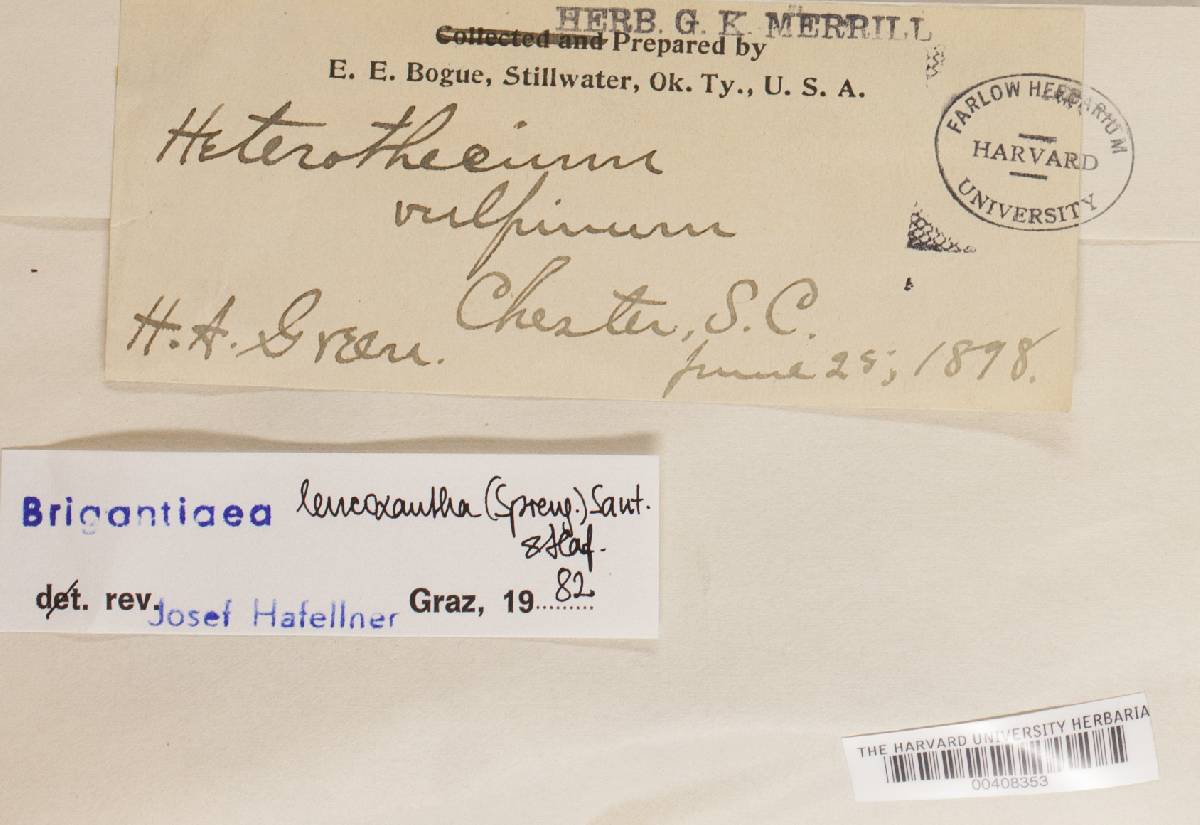 HERB. G. K. MERRILL
Collected and Prepared by
E. E. Bogue, Stillwater, Ok. Ty., U. S. A.
FARLOW HERBARIUM
HARVARD
UNIVERSITY
Heterothecium
vulpinum
Chester, S.C.
H. A. Green.
June 25, 1898.
Brigantiaea leucoxantha (Spreng.) Sant.
& Haf.
det. rev. Josef Hafellner Graz, 19 82
THE HARVARD UNIVERSITY HERBARIA
00408353